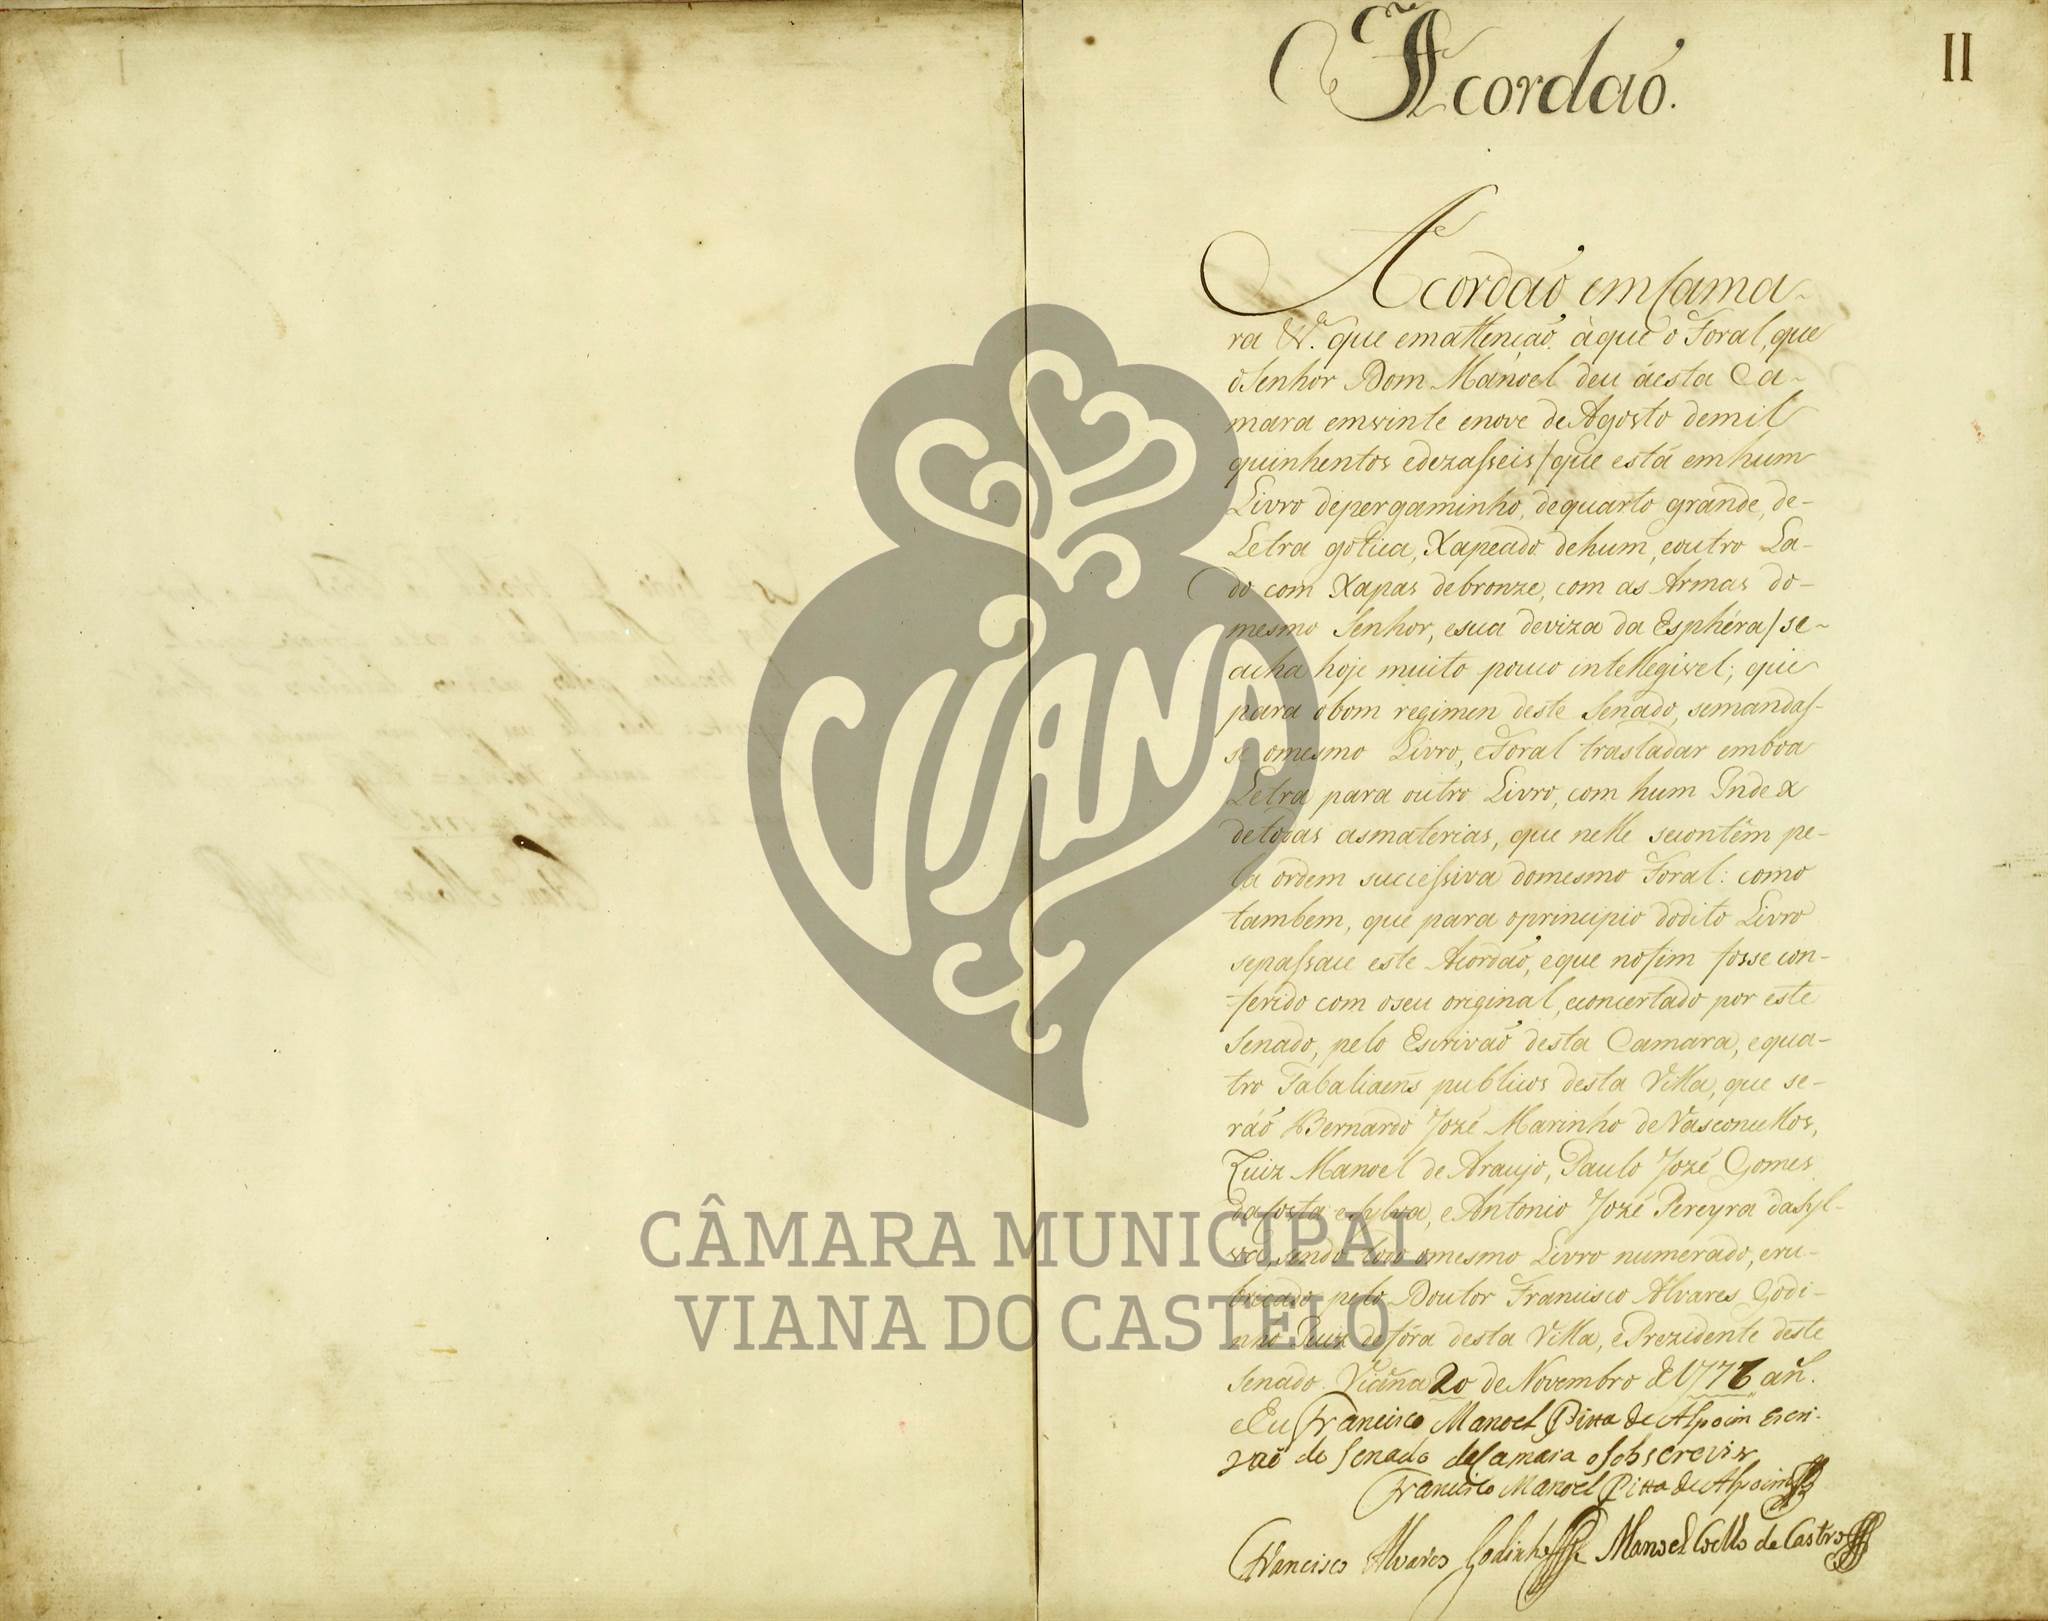 II
Acordaõ.
Acordaõ em Cama-
ra &ª. que em attençaõ à que o Foral, que
o Senhor Dom Manoel deu áesta Ca-
mara emvinte enove de Agosto demil
quinhentos edezasseis / que está emhum
Livro depergaminho, dequarto grande, de-
Letra gotica, Xapeado dehum, eoutro La-
do com Xapas debronze, com as Armas do-
mesmo Senhor, esua deviza da Esphéra / se-
acha hoje muito pouco intellegivel; que
para obom regimen deste Senado, semandas-
se omesmo Livro, eForal trasladar emboa
Letra para outro Livro, com hum Index
detodas asmaterias, que nelle secontêm pe-
la ordem successiva domesmo Foral: como
tambem, que para oprincipio dodito Livro
sepassace este Acordaõ, eque nofim fosse con-
ferido com oseu original, econcertado por este
Senado, pelo Escrivaõ desta Camara, equa-
tro Tabaliaens publicos desta Villa, que se-
ráõ Bernardo Jozé Marinho deVasconcellos,
Luiz Manoel de Araujo, Paulo Jozé Gomes
daCosta eSylva, eAntonio Jozé Pereyra daSyl-
va, sendo todo omesmo Livro numerado, eru-
bricado pelo Doutor Francisco Alvares Godi-
nho Juiz defóra desta Villa, ePrezidente deste
Senado. Viana 20 deNovembro de 1776 añ.
eEu Francisco Manoel Pitta de Alpoim Escri-
vaõ do Senado daCamara osobscrevir
Francisco Manoel Pitta de Alpoim
Francisco Alvares Godinho Manoel Coelho de Castro
VIANA
CÂMARA MUNICIPAL
VIANA DO CASTELO